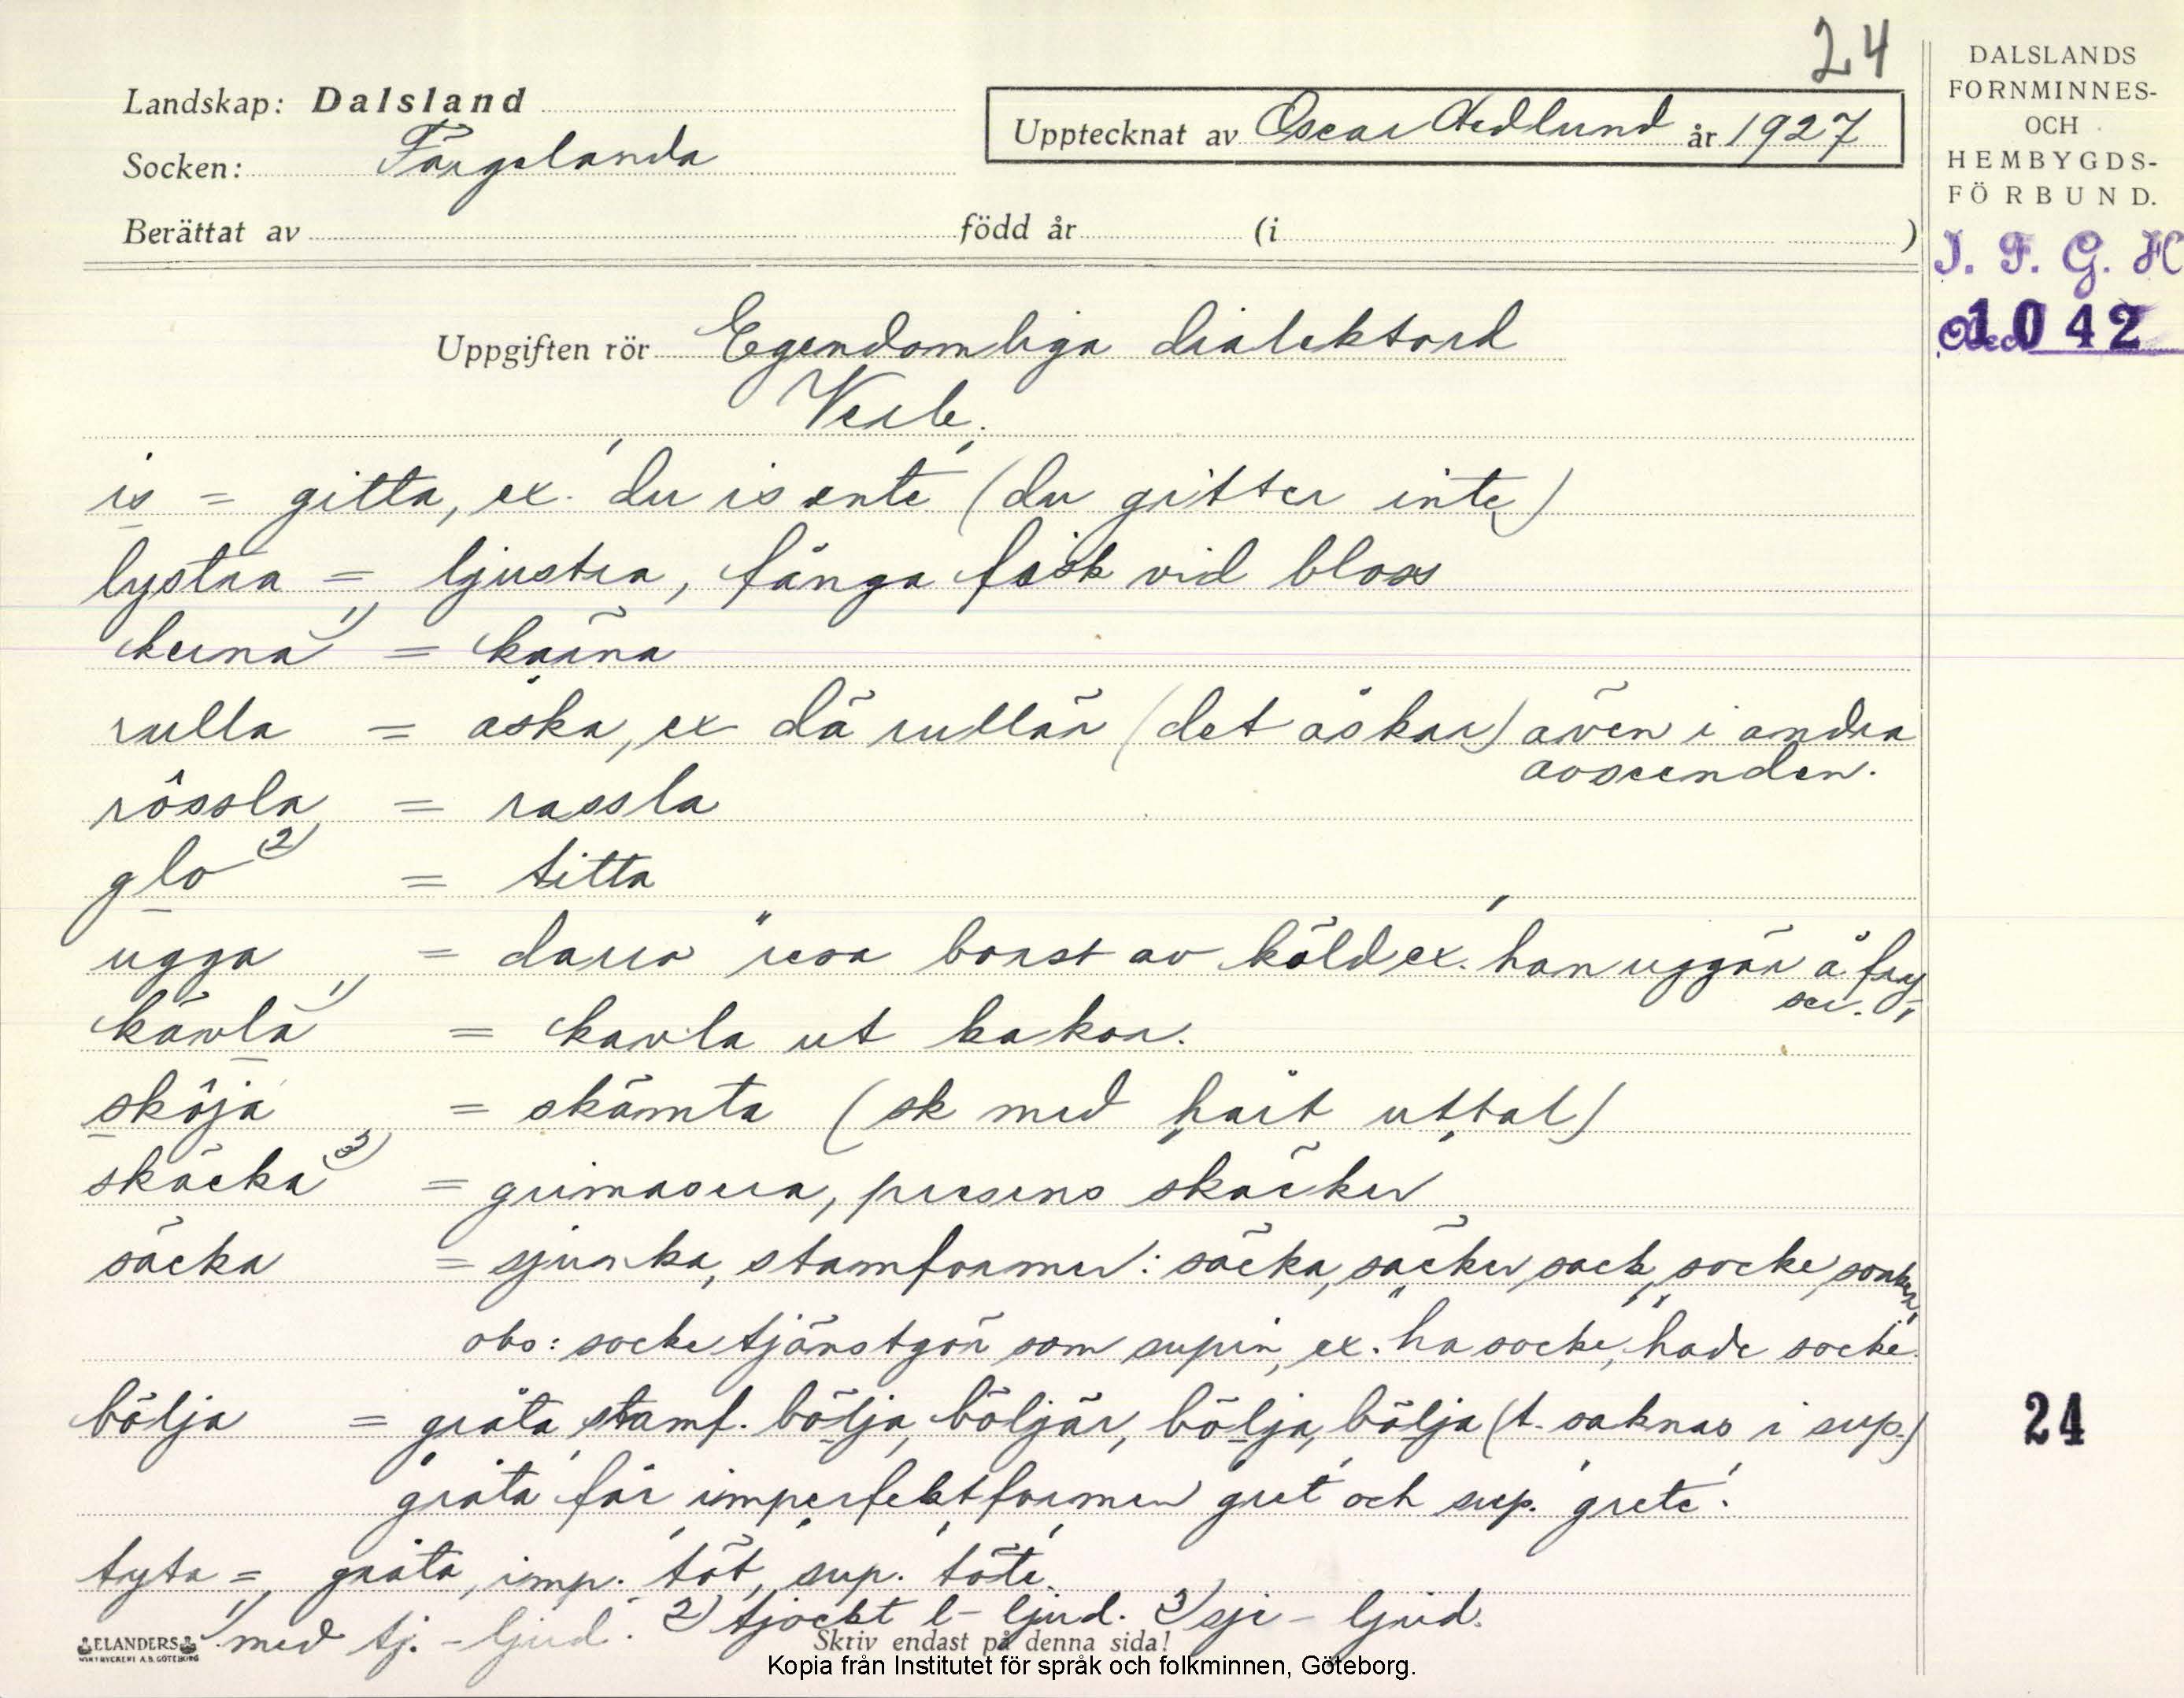 24
Landskap: Dalsland
Socken: Färgelanda
Upptecknat av Oscar Hedlund år 1927
Berättat av född år (i )
DALSLANDS
FORNMINNES-
OCH
HEMBYGDS-
FÖRBUND.
I. F. G. H.
1042
Uppgiften rör Egendomliga dialektord
Verb.
is = gitta, ex. du is ente (du gitter inte)
lystra = ljustra, fånga fisk vid bloss
kerna 1) = kärna
rulla = åska, ex dä rullär (det åskar) även i andra
avseenden.
rôssla = rassla
glo 2) = titta
ugga = darra "resa borst av köld ex. han uggär å fry-
ser."
kävla 1) = kavla ut kakor.
skôja = skämta (sk med hårt uttal)
skäcka 3) = grimasera, presens skäcker
säcka = sjunka, stamformer: säcka, säcker, sack, socke, sonken
obs: socke tjänstgör som supin, ex. "ha socke", "hade socke"
bölja = gråta, stamf. bölja, böljär, bölja, bölja (t. saknas i sup.)
"gråta" får imperfektformen "gret" och sup. "grete".
tyta = gråta, imp. "töt", sup. "töte".
1) med tj. - ljud. 2) tjockt l - ljud. 3) sje - ljud.
ELANDERS
BOKTRYCKERI A.B. GÖTEBORG
Skriv endast på denna sida!
24
Kopia från Institutet för språk och folkminnen, Göteborg.